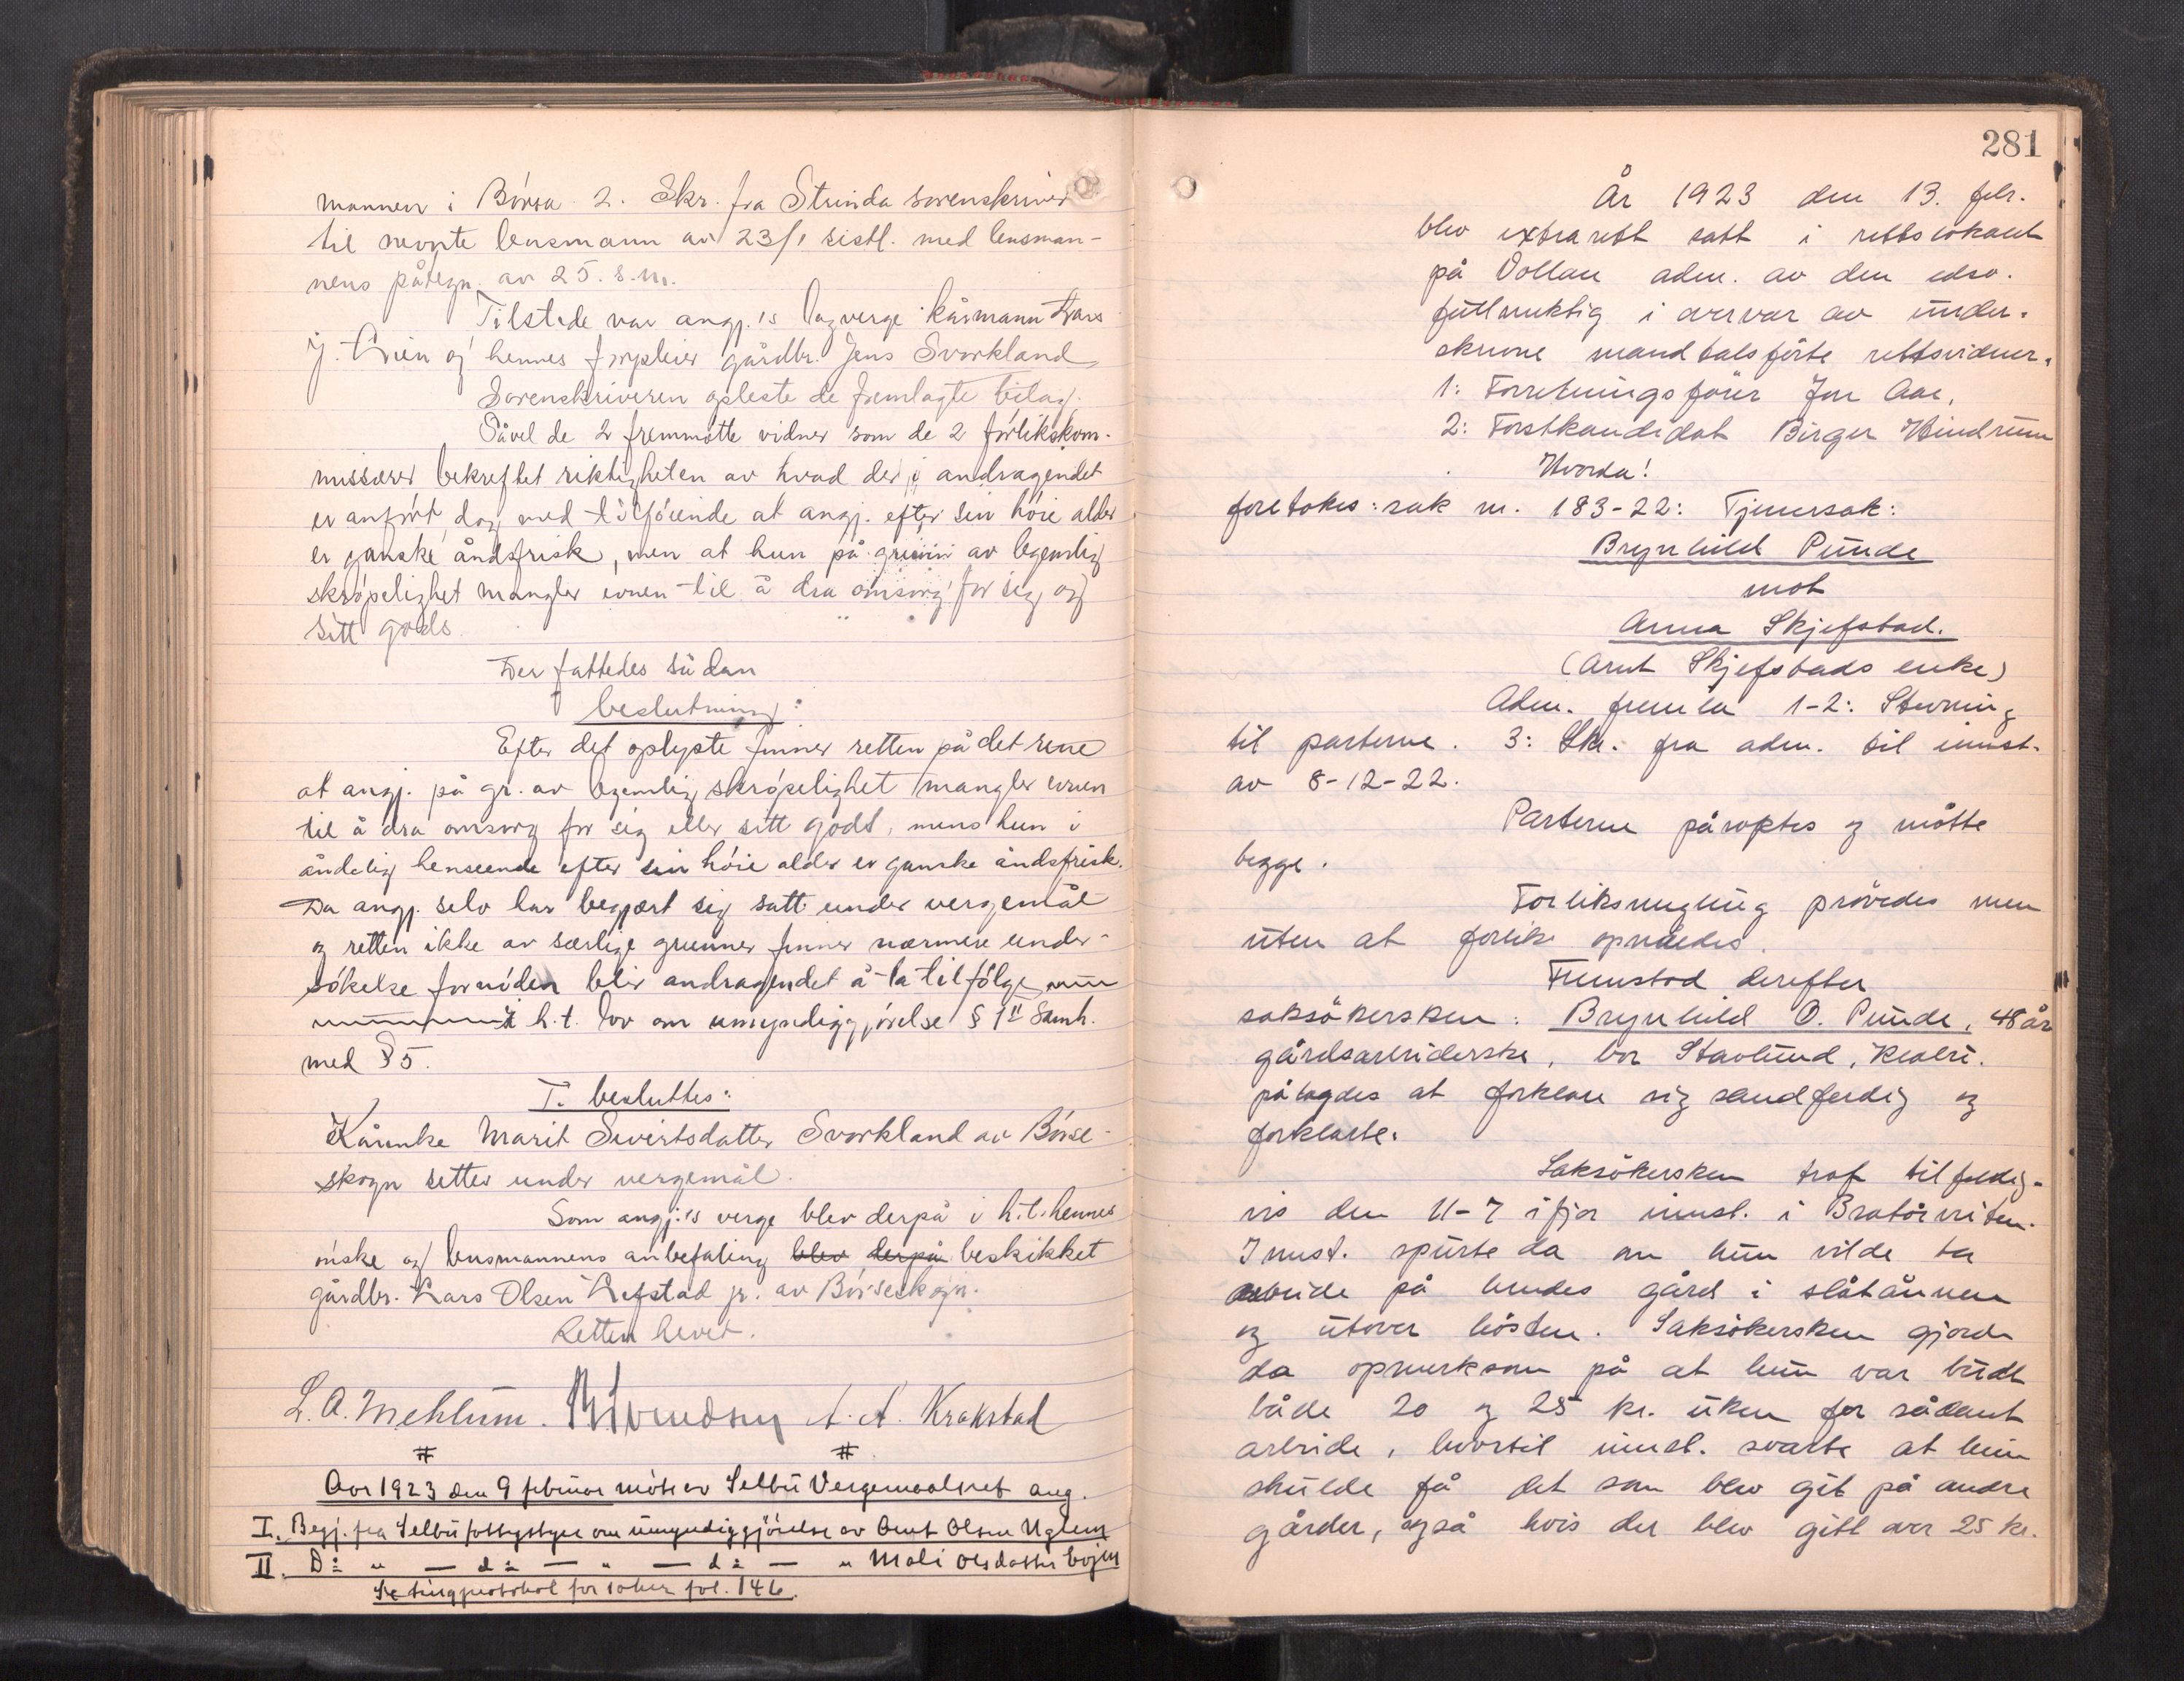 mannen i Börsa. 2. Skr. fra Strinda sorenskriver
til nevnte lensmann av 23/1 sistl. med lensman-
nens påtegn. av 25. s.m.
Tilstede var angj.'s lagverge kårmann Lars
J. Öien og hennes forpleier gårdbr. Jens Svorkland
Sorenskriveren opleste de fremlagte bilag.
Såvel de 2 fremmötte vidner som de 2 forlikskom-
missærer bekreftet riktigheten av hvad der i andragendet
er anfört, dog med tilföiende at angj. efter sin höie alder
er ganske åndsfrisk, men at hun på grunn av legemlig
skröpelighet mangler evnen til å dra omsorg for sig og
sitt gods.
Der fattedes sådan
beslutning:
Efter det oplyste finner retten på det rene
at angj. på gr. av legemlig skröpelighet mangler evnen
til å dra omsorg for sig eller sitt gods, mens hun i
åndelig henseende efter sin höie alder er ganske åndsfrisk.
Da angj. selv har begjært sig satt under vergemål
og retten ikke av særlige grunner finner nærmere under-
sökelse fornöden blir andragendet å ta tilfölge
i h.t. lov om umyndiggjörelse § 1 Samh.
med § 5.
T. besluttes:
Kårenke Marit Sivertsdatter Svorkland av Börse-
skogn settes under vergemål.
Som angj.'s verge blev derpå i h.t. hennes
önske og lensmannens anbefaling blev derpå beskikket
gårdbr. Lars Olsen Lefstad jr. av Börseskogn.
Retten hevet.
L. A. Mehlum. A. A. Krokstad
# #
Aar 1923 den 9 februar möte av Selbu Vergemaalsret ang.
I. Begj. fra Selbu fattigstyre om umyndiggjörelse av Arnt Olsen Uglem
II. Do " — do — " — do — " Mali Olsdatter Evjen
Se tingprotokol for saker fol. 146.
281
År 1923 den 13. febr.
blev extrarett satt i rettslokalet
på Vollan adm. av den edsv.
fullmektig i overvær av under-
skrevne mandtalsförte rettsvidner.
1: Forretningsförer Jon Aae,
2: Forstkandidat Birger Hindrum
Hvorda!
foretokes: sak nr. 183-22: Tjenersak:
Brynhild Punde
mot
Anna Skjefstad.
(Arnt Skjefstads enke)
Adm. fremla 1-2: Stevning
til parterne. 3: Skr. fra adm. til innst.
av 8-12-22.
Parterne påroptes og mötte
begge.
Forliksmegling prövedes men
uten at forlik opnåedes.
Fremstod derefter
saksökersken: Brynhild O. Punde, 48 år
gårdsarbeiderske, bor Stavlund,
pålagdes at forklare sig sandferdig og
forklarte:
Saksökersken traf tilfeldig-
vis den 11-7 ifjor innst. i Bratörveiten.
Innst. spurte da om hun vilde ta
arbeide på hendes gård i slåtånnen
og utover hösten. Saksökersken gjorde
da opmerksom på at hun var budt
både 20 og 25 kr. uken for sådant
arbeide, hvortil innst. svarte at hun
skulde få det som blev git på andre
gårder, også hvis der blev gitt over 25 kr.